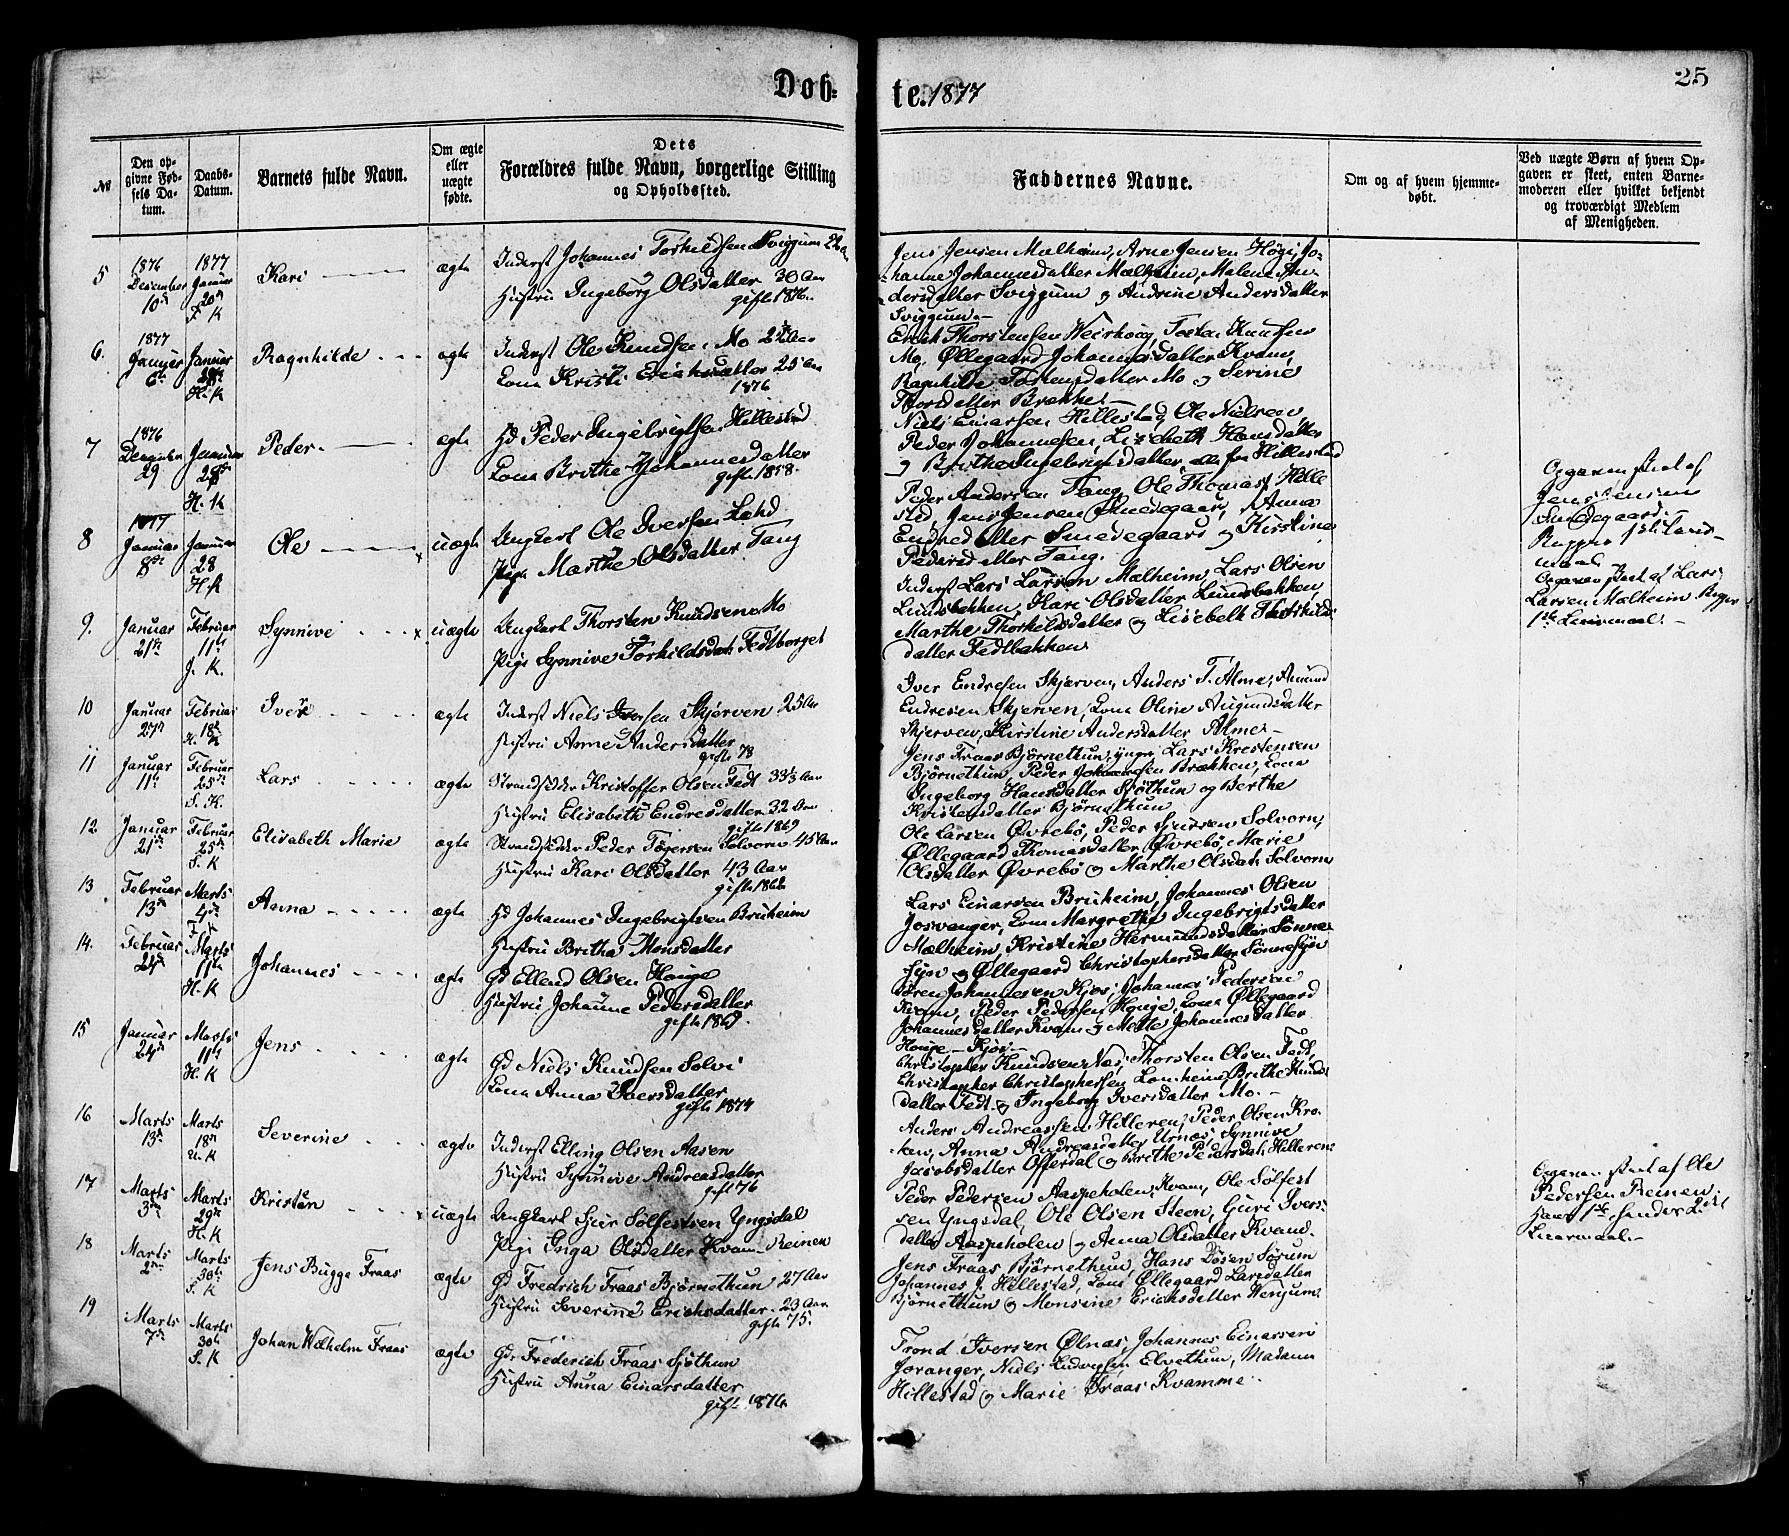 Døb-
te. 1877
25
№
Den op-
givne Fød-
sels Da-
tum.
Daabs-
Datum.
Barnets fulde Navn.
Om ægte
eller
uægte
fødte.
Dets
Forældres fulde Navn, borgerlige Stilling
og Opholdssted.
Faddernes Navne.
Om og af hvem hjemme-
døbt.
Ved uægte Børn af hvem Op-
gaven er skeet, enten Barne-
moderen eller hvilket bekjendt
og troværdigt Medlem
af Menigheden.
5
1876
December
10de
1877
Januar
20de
F. K
Kari
ægte
Inderst Johannes Torkildsen Sviggum
Hustru Ingeborg Olsdatter 30 Aar
gifte 1876.
Jens Jensen Mælheim, Arne Jensen Høgi, Jo-
hanne Johannesdatter Mælheim, Malene An-
dersdatter Sviggum og Andrine Andersdatter
Sviggum.
6.
1877
Januar
6te
Januar
28
H. K
Ragnhilde
ægte
Inderst Ole Knudsen Mo
Kona Kristi Eriksdatter 25 Aar
1876
Erik Thorstensen Knudsen
Mo, Øllegaard Johannesdatter Kvam,
Ragnhilde Torstensdatter Mo og Serine
Thorsdatter Brække.
7
1876
December
29
Januar
28
H. K
Peder
ægte
Gd Peder Ingebrigtsen Hillestad
Kona Brithe Johannesdatter
gifte 1858.
Niels Einarsen Hillestad, Ole Nielsen,
Peder Johannesen, Lisebeth Hansdatter
og Brithe Ingebrigtsdatter, alle fra Hillestad
8
1877
Januar
8de
Januar
28
H. K
Ole
uægte
Ungkarl Ole Iversen
Pige Marthe Olsdatter Tang
Peder Andersen Tang, Ole Thomas. Hille
stad, Jens Jensen Smedegaard, Anna
Endredatter Smedegaard og Kirstine
Pedersdatter Tang.
Opgaven skeet af
Jens Jensen
Smedegaard.
Begges 1ste Leier-
maal
9.
Januar
21de
Februar
11te
J. K.
Synnive
uægte
Ungkarl Thorsten Knudsen Mo
Pige Synnive Torkildsdat.
Inderst Lars Larsen Mælheim, Lars Olsen
Lundsbakken, Kari Olsdatter Lundsbakken
Marthe Thorkilsdatter og Lisebeth Thorkilds
datter
Opgaven skeet af Lars
Larsen Mælheim Begges
1ste Leiermaal.
10
Januar
27de
Februar
18de
H. K
Iver
ægte
Inderst Niels Iversen Skjerven 25 Aar
Hustru Anne Andersdatter
gifte
Iver Endresen Skjerven, Anders T. Alme, Amund
Endresen Skjerven, Kona Oline Augundsdatter
Skjerven, Kirstine Andersdatter Alme
11
Januar
11te
Februar
25de
S. K.
Lars
ægte
Strandsidder Kristoffer Olsen 33⅓ Aar
Hustru Elisabeth Endresdatter 32 Aar
gifte 1869
Jens Fraas Bjørnethun, yngre, Lars Krestensen
Bjørnethun, Peder Johannesen Brækken, Kona
Ingeborg Hansdatter Sjøthun og Berthe
Kristensdatter Bjørnethun
12
Januar
21de
Februar
25de
S. K
Elisabeth Marie
ægte
Strandsidder Peder Tøgersen Solvorn 45 Aar
Hustru Kari Olsdatter 43 Aar
gifte
Ole Larsen Øvrebø, Peder Sjursen Solvorn,
Øllegaard Thomasdatter Øvrebø, Marie
Olsdatter Øvrebø og Marthe Olsdat: Solvorn
13
Februar
13de
Marts
4de
F. K
Anna
ægte
Gd Johannes Ingebrigtsen Bruheim
Hustru Britha Monsdatter
Lars Einarsen Bruheim, Johannes Olsen
Kona Margrethe Ingebrigtsdatter
Mælheim, Kristine Hermundsdatter Sønne-
syn og Øllegaard Christophersdatter Sønnesyn
14.
Februar
24de
Marts
11te
H. K
Johannes
ægte
Gd Ellend Olsen Houge
Hustru Johanne Pedersdatter
gifte
Søren Johannesen Kjos, Johannes Pedersen
Kvam, Peder Pedersen Houge, Kona Øllegaard
Johannesdatter Kvam og Mette Johannesdatter
Houge - Kjos -
15
Januar
24de
Marts
11te
H. K
Jens
ægte
Gd Niels Knudsen Solvi
Kona Anna Iversdatter
gifte 1874
Christopher Knudsen Næs, Thorsten Olsen
Christopher Christophersen Lomheim, Brithe Knuds
datter og Ingeborg Iversdatter Mo.
16
Marts
13de
Marts
18de
U. K
Severine
ægte
Inderst Elling Olsen Aasen
Hustru Synnive Andreasdatter
gift 76
Anders Andreassen Hilleren, Peder Olsen Kro-
ken, Anna Andreasdatter Urnæs, Synnive
Jacobsdatter Offerdal og Brithe Pedersdat. Hilleren.
17
Marts
3die
Marts
29de
H. K
Kristen
uægte
Ungkarl Sjur Sølfestsen Yngsdal
Pige Inga Olsdatter Kvam - Reinen
Peder Pedersen Aaspeholen, Kvam, Ole Sølfest
sen Yngsdal, Ole Olsen Steen, Guri Ivers-
datter Aaspeholen og Anna Olsdatter
Opgaven skeet af Ole
Pedersen Reinen
Hans 1ste hendes 2det
Leiermaal.
18
Marts
2den
Marts
30te
S. K
Jens Bugge Fraas
ægte
Gd Fredrich Fraas Bjørnethun, 27 Aar
Hustru Severine Erichsdatter. 23 Aar
gifte 75.
Jens Fraas Bjørnethun, Hans Døsen Sørum
Johannes J Hillestad, Kona Øllegaard Larsdatter
Bjørnethun og Monsine Ericksdatter Venjum.
19
Marts
7de
Marts
30te
S. K
Johan Wilhelm Fraas
ægte
Gdr Frederich Fraas Sjøthun
Hustru Anna Einarsdatter
gifte 1876.
Trond Iversen Ølnæs, Johannes Einarsen
Joranger, Niels Ludvigsen Elvethun, Madame
Hillestad og Marie Fraas Kvamme.